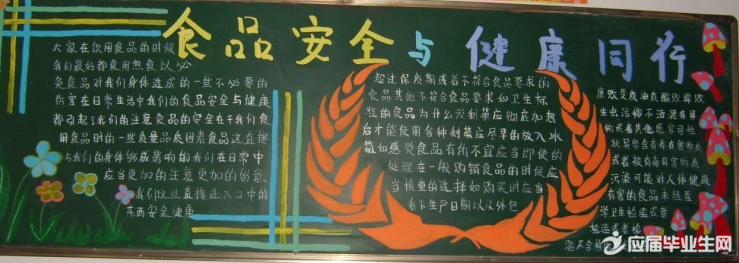 食品安全与健康同行
大家在饮用食品的时候
我们最好都食用熟食以必
免食品对我们身体造成的一些不必要的
伤害在日常生活中我们的食品安全与健康
都引起了我们的注意食品的安全在于我们食
用食品时的一些质量品质因素食品这直接
与我们的身体够成影响的我们在日常中
应当更加的注意更加的留意
我们这些直接进入口中的
东西安全健康
超过保质期或者不符合食品要求的
食品其他不符合食品要求和卫生标
准的食品为什么发制装应彻底加热
后才能使用各种制装应尽早的放入冰
箱如感觉食品有所不宜应当即使的
处理在一般购销食品的时候应
当慎重的选择如购买时应当
看下生产日期以及外包
腐败变质油炭酸败霉发
生虫活修不洁混有异
状异常含有毒有害物
或者被有毒有害物质
污染可能对人体健康
有害的食品未经医
应届毕业生网